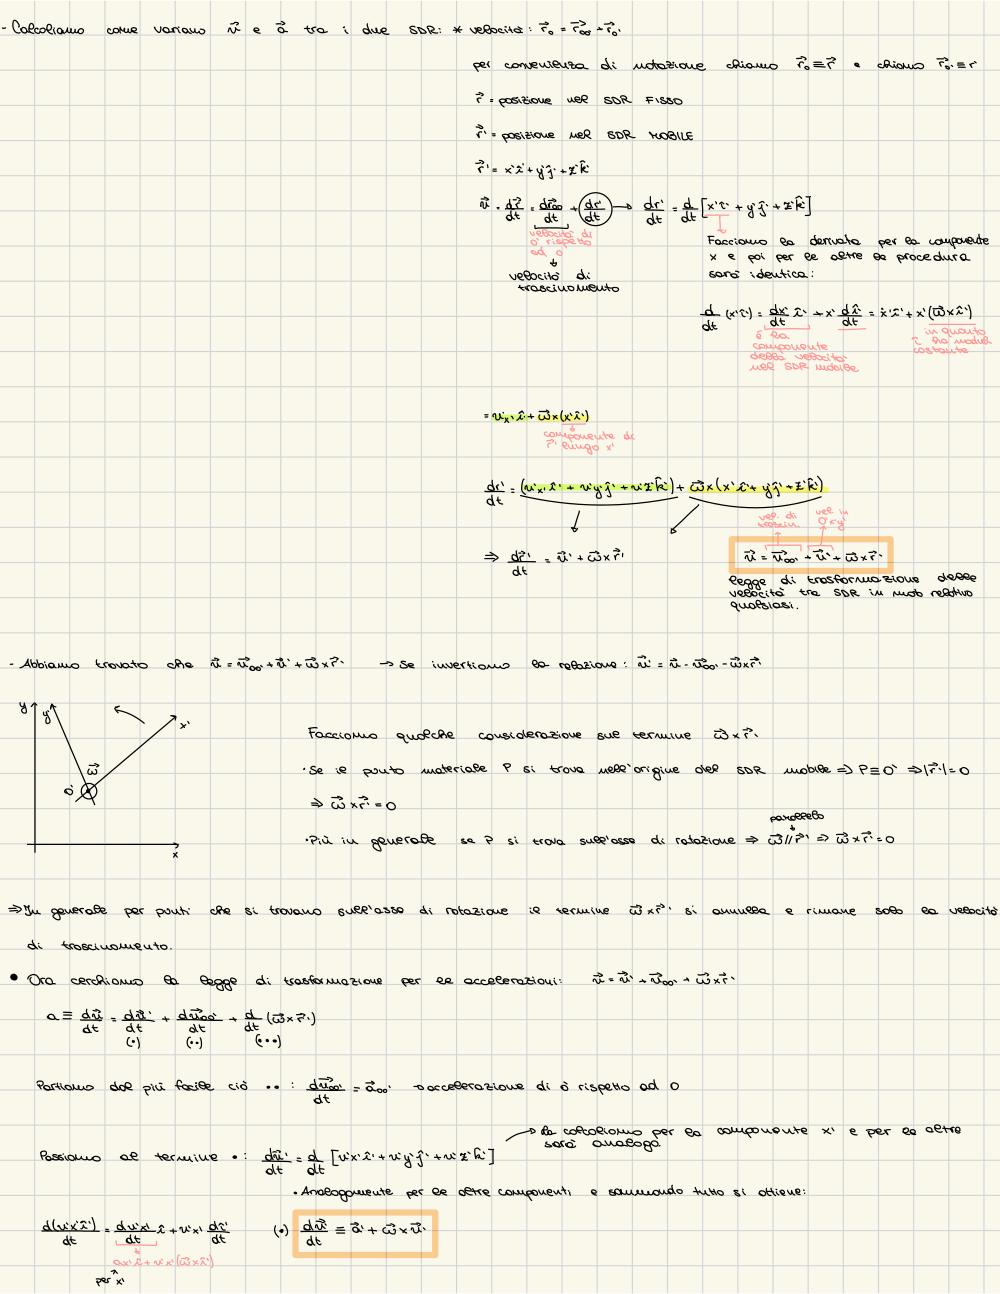 - Calcoliamo come variano v⃗ e a⃗ tra i due SDR: * velocità: r⃗₀ = r⃗₀₀' + r⃗₀'
per convenienza di notazione chiamo r⃗₀ ≡ r⃗ e chiamo r⃗₀' ≡ r'
r⃗ = posizione nel SDR FISSO
r⃗' = posizione nel SDR MOBILE
r⃗' = x'î' + y'ĵ' + z'k̂'
v⃗ = dr⃗/dt = dr⃗₀₀'/dt + dr'/dt → dr'/dt = d/dt [x'î' + y'ĵ' + z'k̂']
velocità di
O' rispetto
ad O
velocità di
trascinamento
Facciamo la derivata per la componente
x e poi per le altre la procedura
sarà identica:
d/dt (x'î') = dx'/dt î' + x' dî'/dt = ẋ'î' + x'(ω⃗×î')
è la
componente
della velocità
nel SDR mobile
in quanto
î' ha modulo
costante
= v'x' î' + ω⃗×(x'î')
componente di
r⃗' lungo x'
dr'/dt = (v'x' î' + v'y' ĵ' + v'z' k̂') + ω⃗×(x'î' + y'ĵ' + z'k̂')
vel. di
trascin.
vel in
O'x'y'
⇒ dr⃗'/dt = v⃗' + ω⃗×r⃗'
v⃗ = v⃗₀₀' + v⃗' + ω⃗×r⃗'
legge di trasformazione delle
velocità tra SDR in moto relativo
qualsiasi.
- Abbiamo trovato che v⃗ = v⃗₀₀' + v⃗' + ω⃗×r⃗' → Se invertiamo la relazione: v⃗' = v⃗ - v⃗₀₀' - ω⃗×r⃗'
y y' x'
ω⃗
O'
x
Facciamo qualche considerazione sul termine ω⃗×r⃗'
• Se il punto materiale P si trova nell'origine del SDR mobile ⇒ P≡O' ⇒ |r⃗'| = 0
⇒ ω⃗×r⃗' = 0
parallelo
• Più in generale se P si trova sull'asse di rotazione ⇒ ω⃗ // r⃗' ⇒ ω⃗×r⃗' = 0
⇒ In generale per punti che si trovano sull'asse di rotazione il termine ω⃗×r⃗' si annulla e rimane solo la velocità
di trascinamento.
• Ora cerchiamo la legge di trasformazione per le accelerazioni: v⃗ = v⃗' + v⃗₀₀' + ω⃗×r⃗'
a ≡ dv⃗/dt = dv⃗'/dt + dv⃗₀₀'/dt + d/dt (ω⃗×r⃗')
(•) (••) (•••)
Partiamo dal più facile ciò •• : dv⃗₀₀'/dt = a⃗₀₀' → accelerazione di O' rispetto ad O
la calcoliamo per la componente x' e per le altre
sarà analoga
Passiamo al termine • : dv⃗'/dt = d/dt [v'x' î' + v'y' ĵ' + v'z' k̂']
• Analogamente per le altre componenti e sommando tutto si ottiene:
d(v'x' î')/dt = dv'x'/dt î' + v'x' dî'/dt (•) dv⃗'/dt ≡ a⃗' + ω⃗×v⃗'
ax' î' + v'x'(ω⃗×î')
per x'